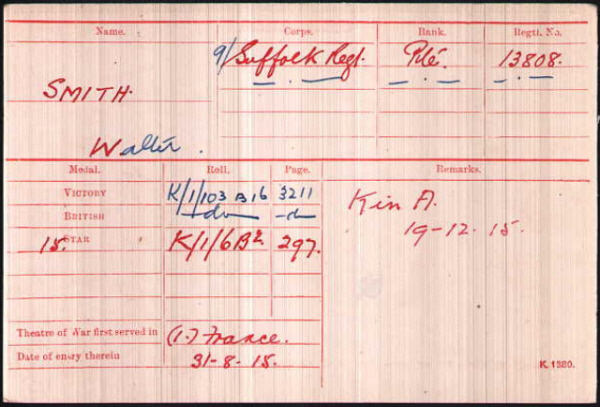 Name. Corps. Rank. Regtl. No.
9/Suffolk Regt. Pte. 13808.
SMITH.
Walter.
Medal. Roll. Page. Remarks.
VICTORY K/1/103 B16 3211 Kin A.
BRITISH -do- -do- 19-12-15.
15 STAR K/1/6B2. 297.
Theatre of War first served in (1.) France.
Date of entry therein 31-8-15.
K 1380.